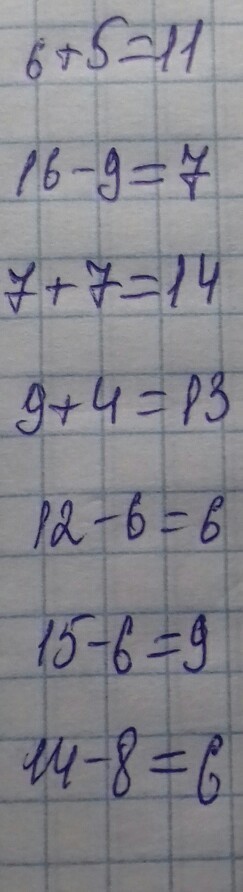 6+5=11
16-9=7
7+7=14
9+4=13
12-6=6
15-6=9
14-8=6